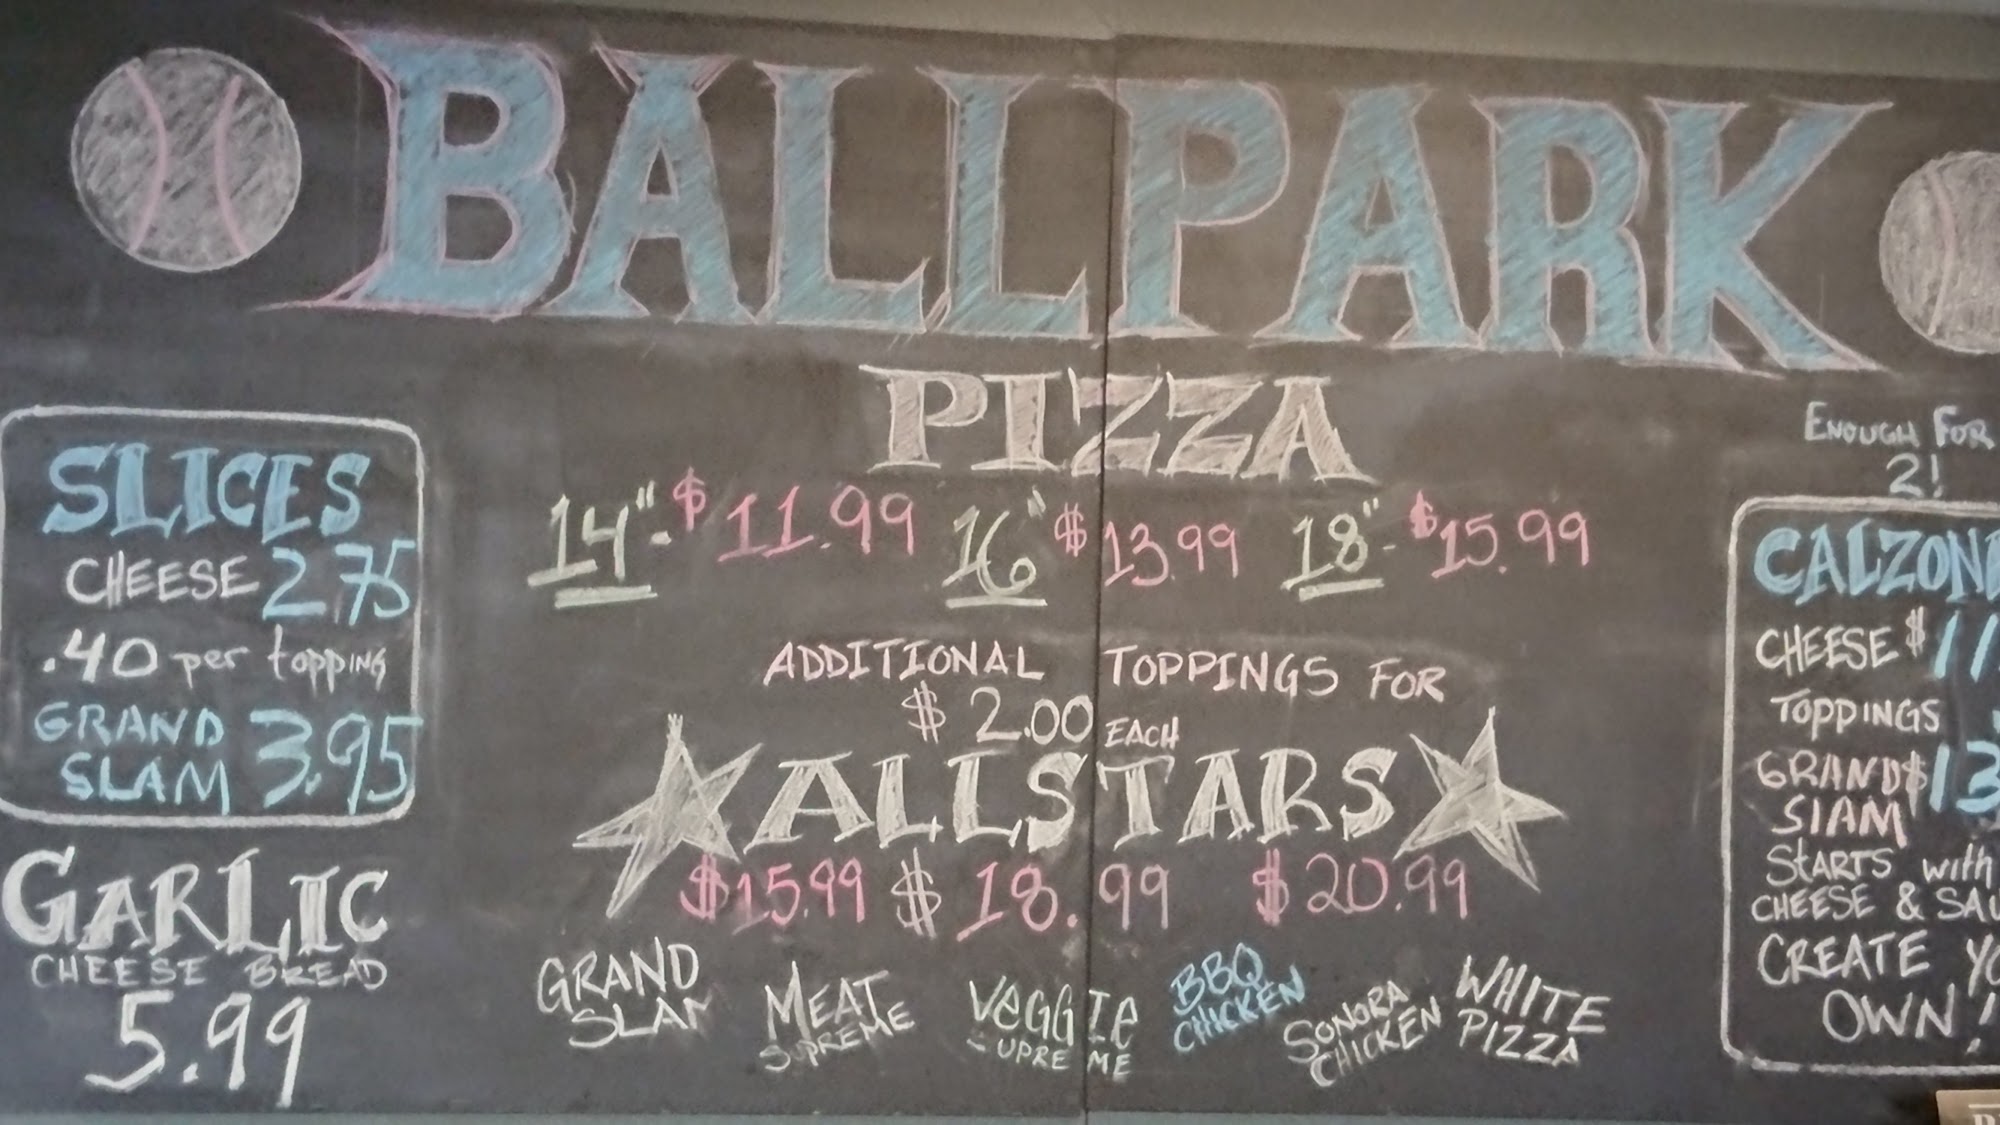 BALLPARK
PIZZA
14"-$11.99 16" $13.99 18"-$15.99
ADDITIONAL TOPPINGS FOR
$2.00 EACH
ALLSTARS
$15.99 $18.99 $20.99
GRAND
SLAM
MEAT
SUPREME
VEGGIE
SUPREME
BBQ
CHICKEN
SONORA
CHICKEN
WHITE
PIZZA
SLICES
CHEESE 2.75
.40 per topping
GRAND
SLAM 3.95
GARLIC
CHEESE BREAD
5.99
ENOUGH FOR
2!
CHEESE $11
TOPPINGS
GRAND $13
SLAM
STARTS with
CHEESE &
CREATE
OWN!